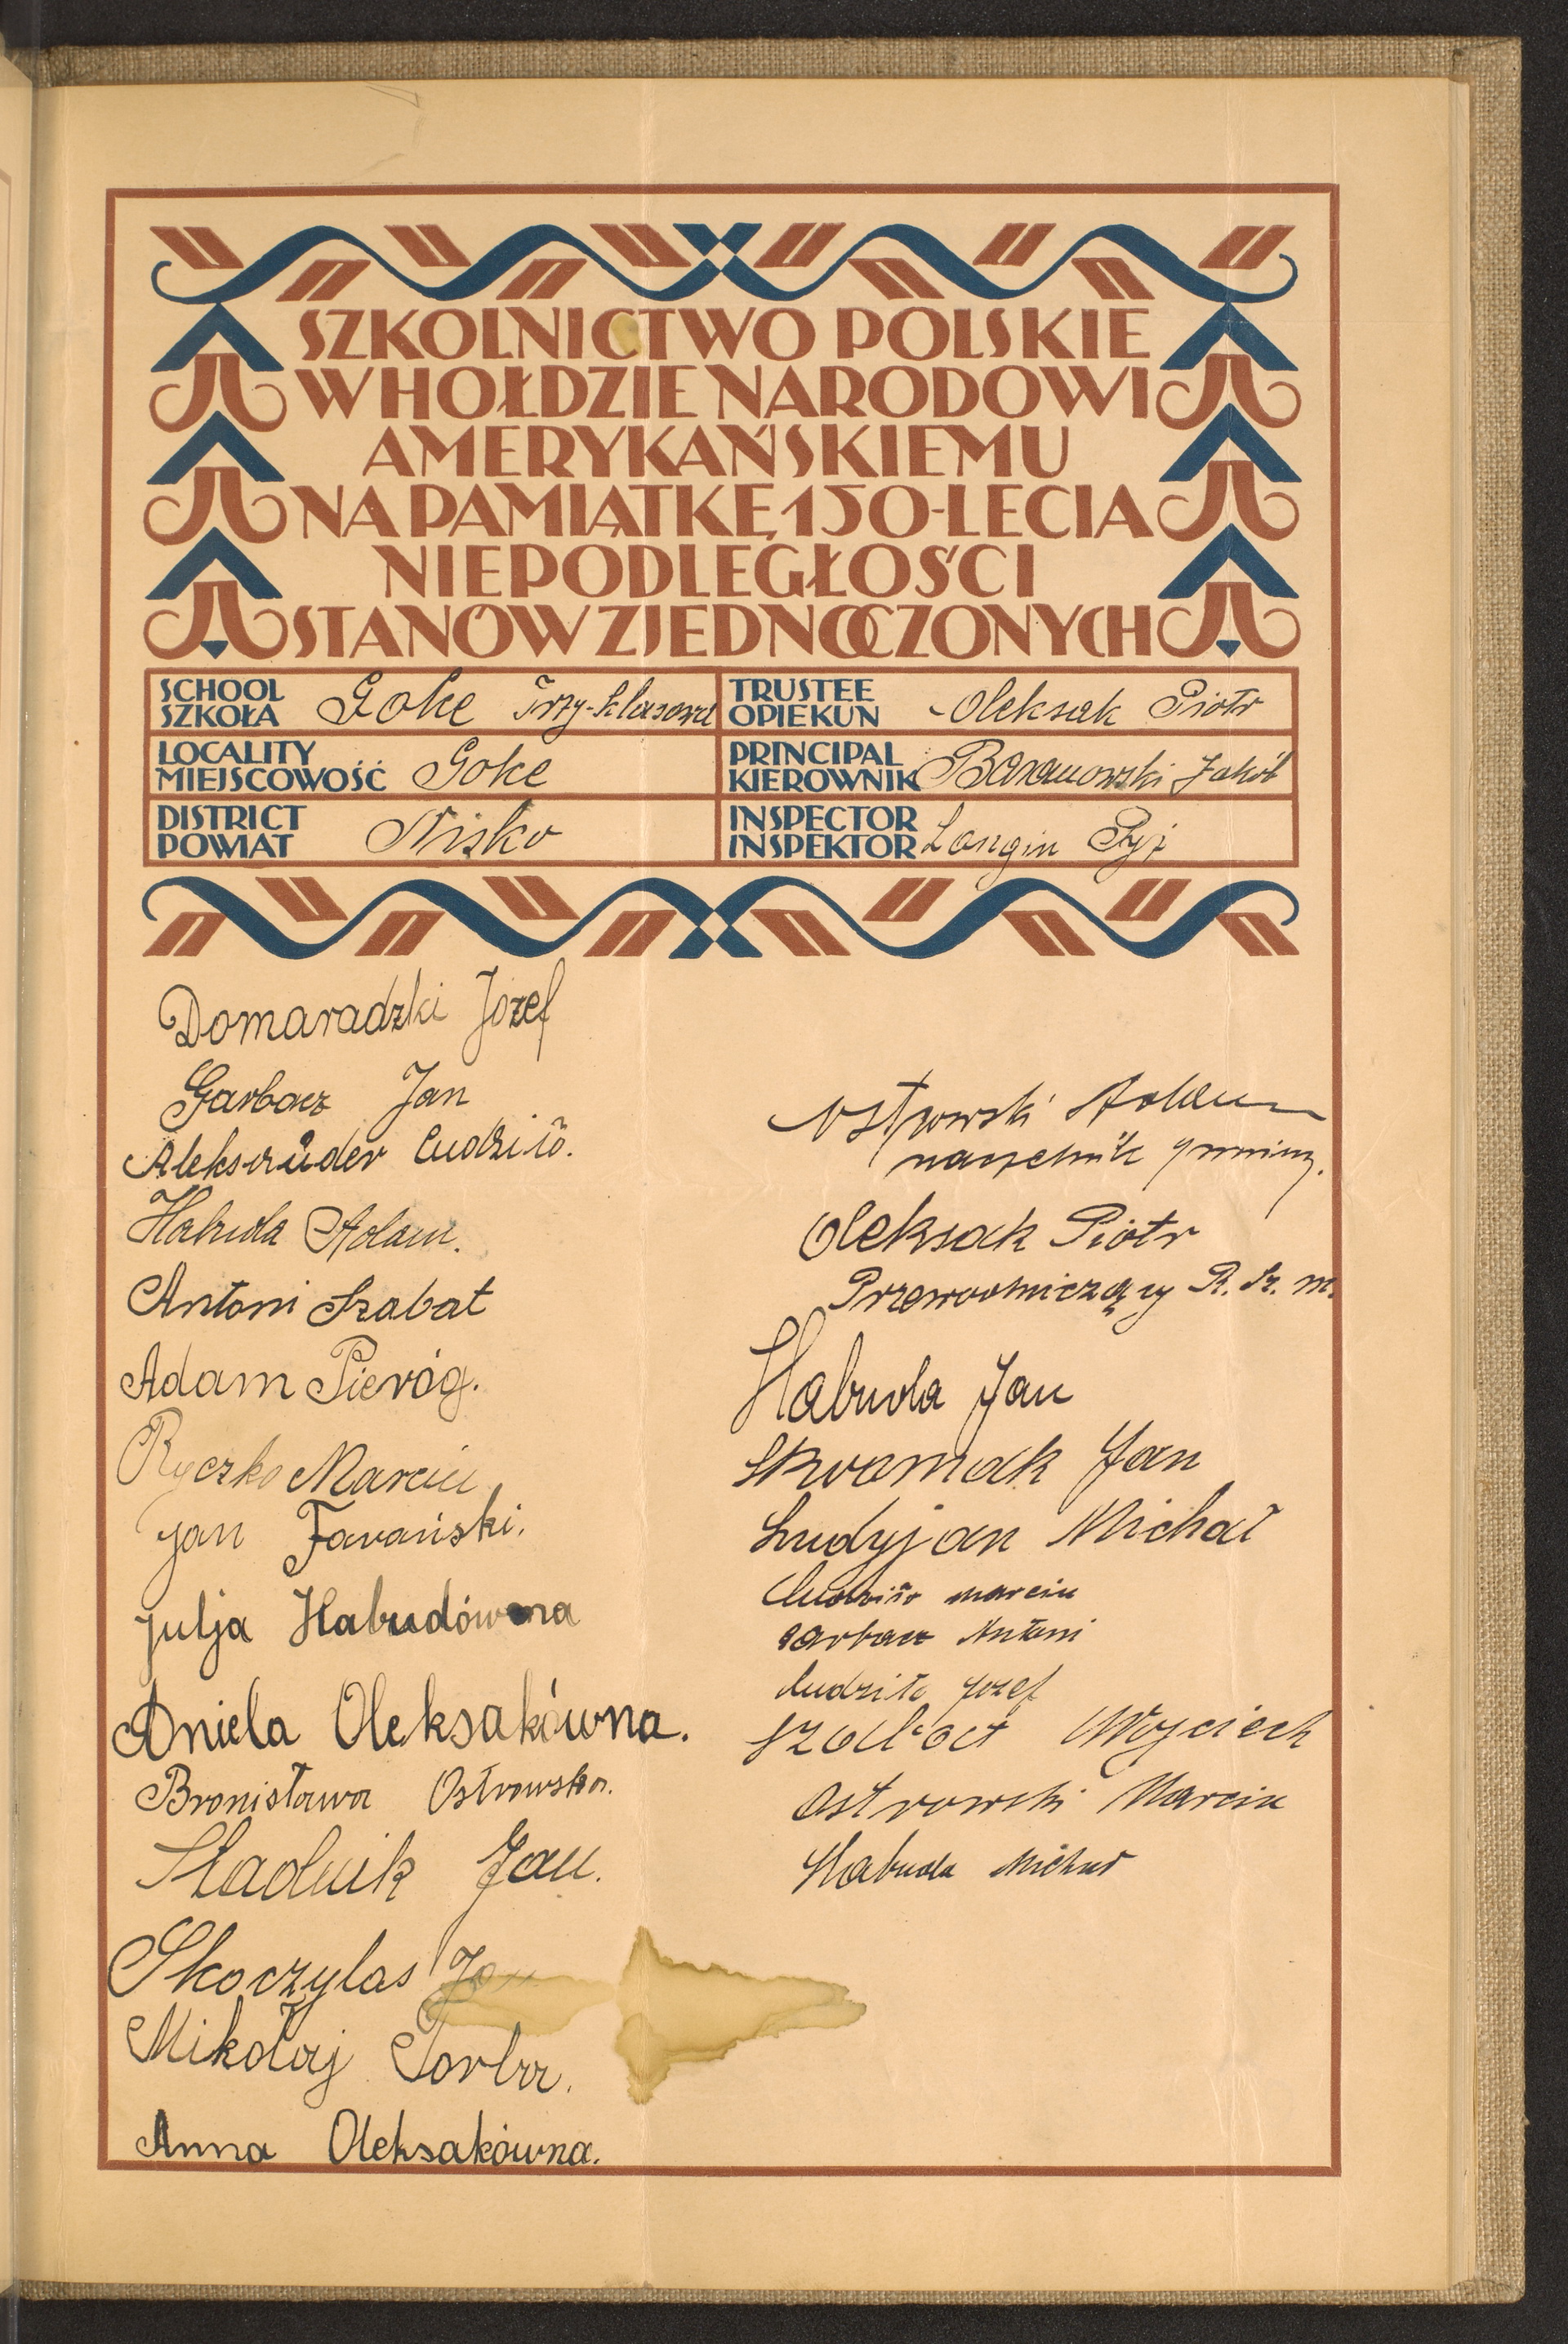 SZKOLNICTWO POLSKIE
W HOŁDZIE NARODOWI
AMERYKAŃSKIEMU
NA PAMIĄTKĘ 150-LECIA
NIEPODLEGŁOŚCI
STANÓW ZJEDNOCZONYCH
SCHOOL
SZKOŁA Goke Trzy-klasowa
TRUSTEE
OPIEKUN Oleksak Piotr
LOCALITY
MIEJSCOWOŚĆ Goke
PRINCIPAL
KIEROWNIK Baranowski Jakób
DISTRICT
POWIAT Nisko
INSPECTOR
INSPEKTOR Longin
Domaradzki Józef
Garbacz Jan
Aleksander Cudziło.
Habuda Adam.
Antoni Szabat
Adam Pieróg.
Ryczko Marcin
Jan Tarański.
Julja Habudówna
Aniela Oleksakówna.
Bronisława Ostrowska.
Sładnik Jan.
Skoczylas Jan
Mikołaj Torba.
Anna Oleksakówna.
Ostrowski Adam
naczelnik gminy.
Oleksak Piotr
Przewodniczący R. Sz. m.
Habuda Jan
Jan
Michał
Marcin
Garbacz Antoni
Cudziło Józef
Szabat Wojciech
Ostrowski Marcin
Habuda Michał